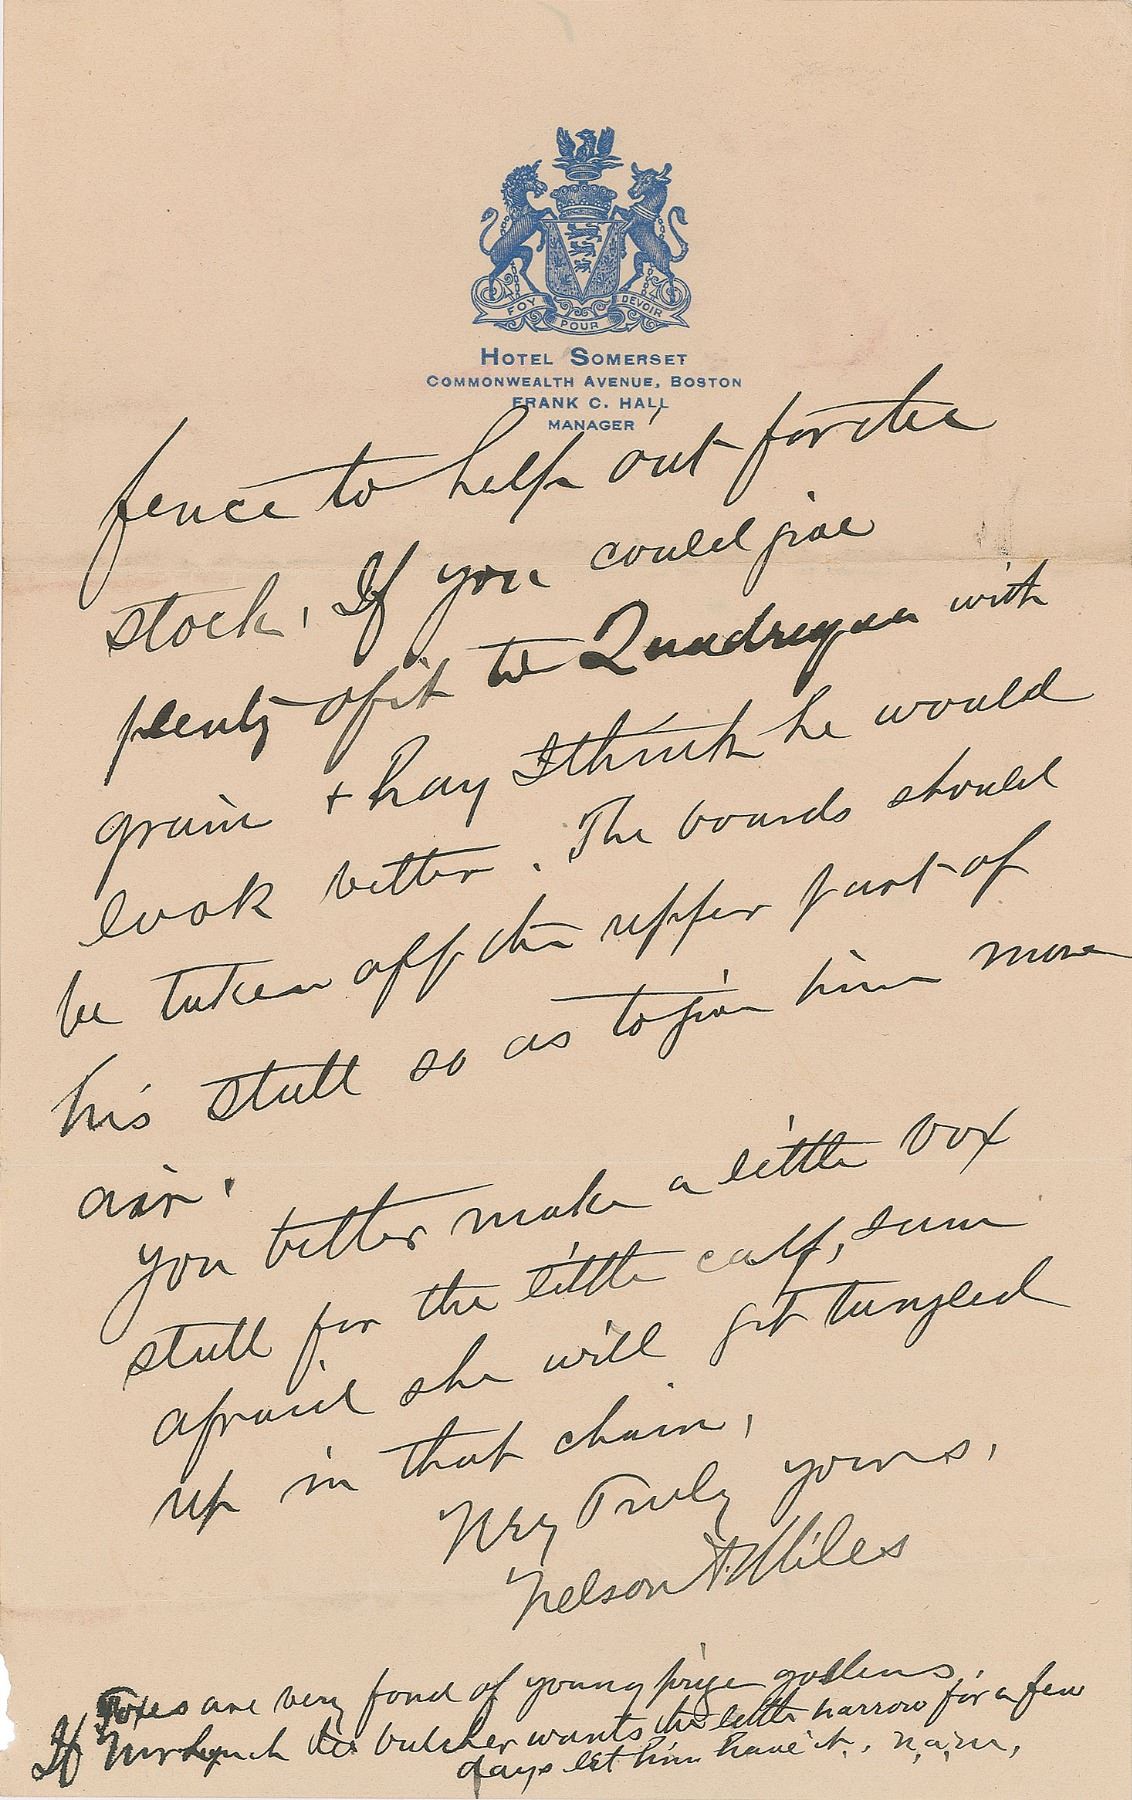 FOY POUR DEVOIR
HOTEL SOMERSET
COMMONWEALTH AVENUE, BOSTON
FRANK C. HALL
MANAGER
fence to help out for the
stock, If you could give
plenty of it to with
grain + hay I think he would
look better. The boards should
be taken off the upper part of
his stall so as to give him more
air.
you better make a little box
stall for the little calf, I am
afraid she will get tangled
up in that chain,
Very Truly yours,
Nelson A. Miles
Foxes are very fond of young
If Mr Lynch the butcher wants the little harrow for a few
days let him have it. N.A.M.